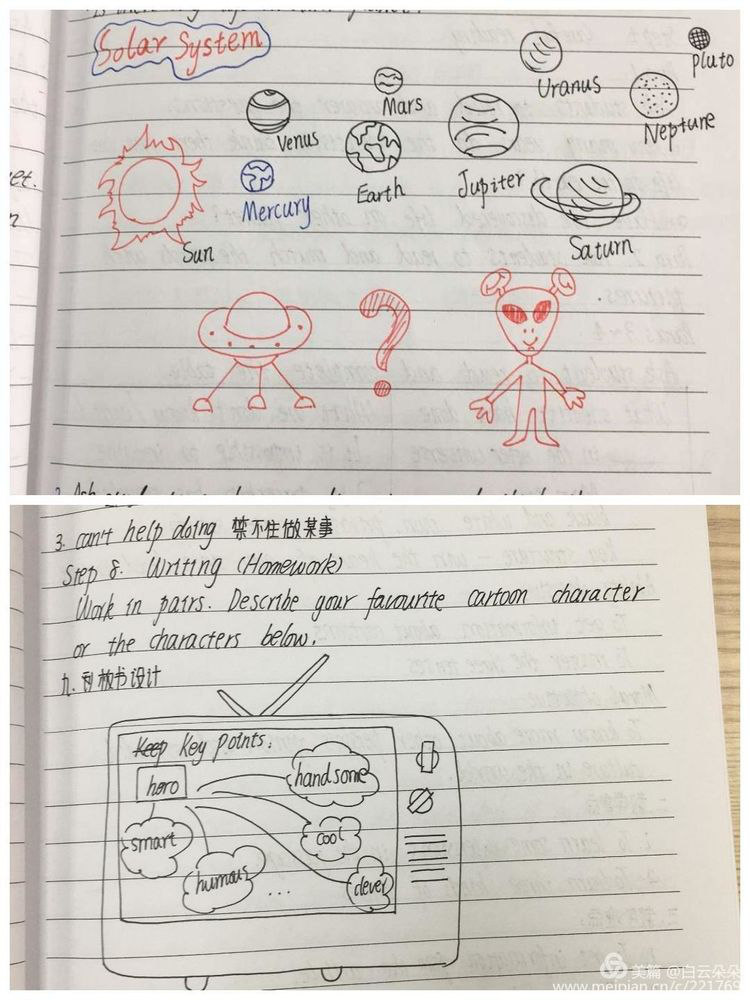 Solar System
Uranus
Pluto
Mars
Venus
Neptune
Earth
Jupiter
Mercury
Sun
Saturn
?
3. can't help doing 禁不住做某事
Step 8. Writing (Homework)
Work in pairs. Describe your favourite cartoon character
or the characters below.
九.板书设计
Key points:
hero
handsome
smart
cool
humous
...
clever
美篇 @白云朵朵
www.meipian.cn/c/221769